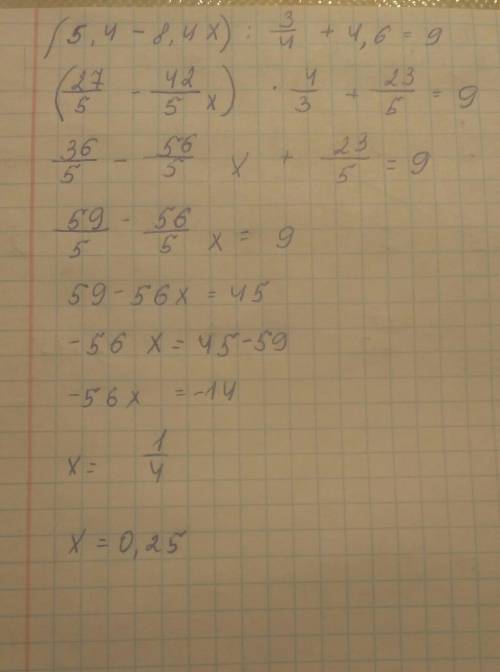 (5,4 - 8,4x) : 3/4 + 4,6 = 9
(27/5 - 42/5 x) · 4/3 + 23/5 = 9
36/5 - 56/5 x + 23/5 = 9
59/5 - 56/5 x = 9
59 - 56x = 45
-56 x = 45-59
-56x = -14
x = 1/4
x = 0,25